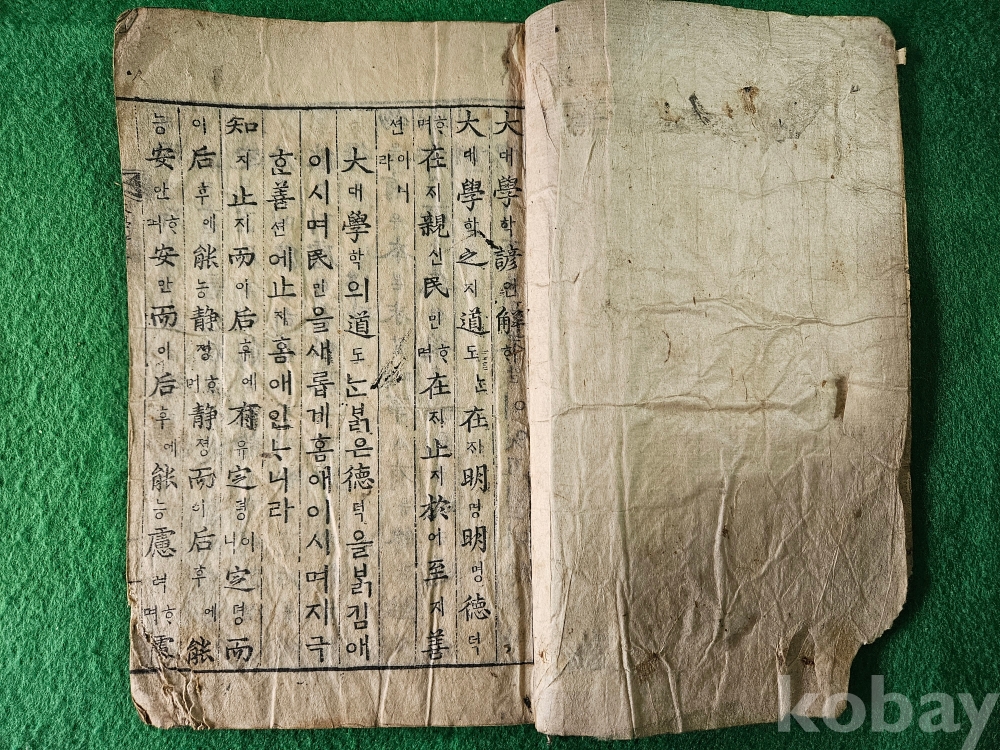 大대學학諺언解ᄒᆡ
大대學학之지道도ᄂᆞᆫ在ᄌᆡ明명明명德덕
ᄒᆞ며在ᄌᆡ親신民민ᄒᆞ며在ᄌᆡ止지於어至지善
션이니라
大대學학의道도ᄂᆞᆫ붉은德덕을붉김애
이시며民민을새롭게홈애이시며지극
ᄒᆞᆫ善션에止지홈애인ᄂᆞ니라
知지止지而이后후에有유定뎡이니定뎡而
이后후에能능静졍ᄒᆞ며静졍而이后후에能
능安안ᄒᆞ며安안而이后후에能능慮려ᄒᆞ며慮
kobay